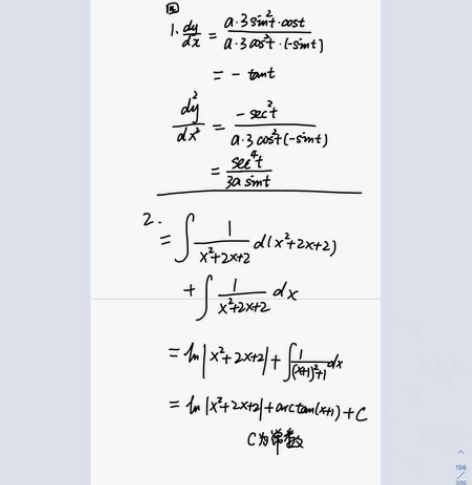 1. dy/dx = a·3sin²t·cost / a·3cos²t·(-sint)
= - tant
dy²/dx² = -sec²t / a·3cos²t(-sint)
= sec⁴t / 3a sint
2.
= ∫ 1/(x²+2x+2) d(x²+2x+2)
+ ∫ 1/(x²+2x+2) dx
= ln|x²+2x+2| + ∫ 1/((x+1)²+1) dx
= ln|x²+2x+2| + arctan(x+1) + C
C为常数
198/200